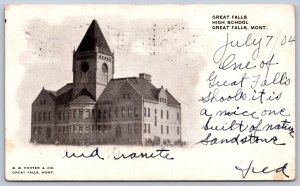 GREAT FALLS
HIGH SCHOOL
GREAT FALLS, MONT.
July 7/04
One of
Great Falls
Shools it is
a nice one
built of native
Sandstone
and Granite
Fred
D. PORTER & CO.
GREAT FALLS, MONT.